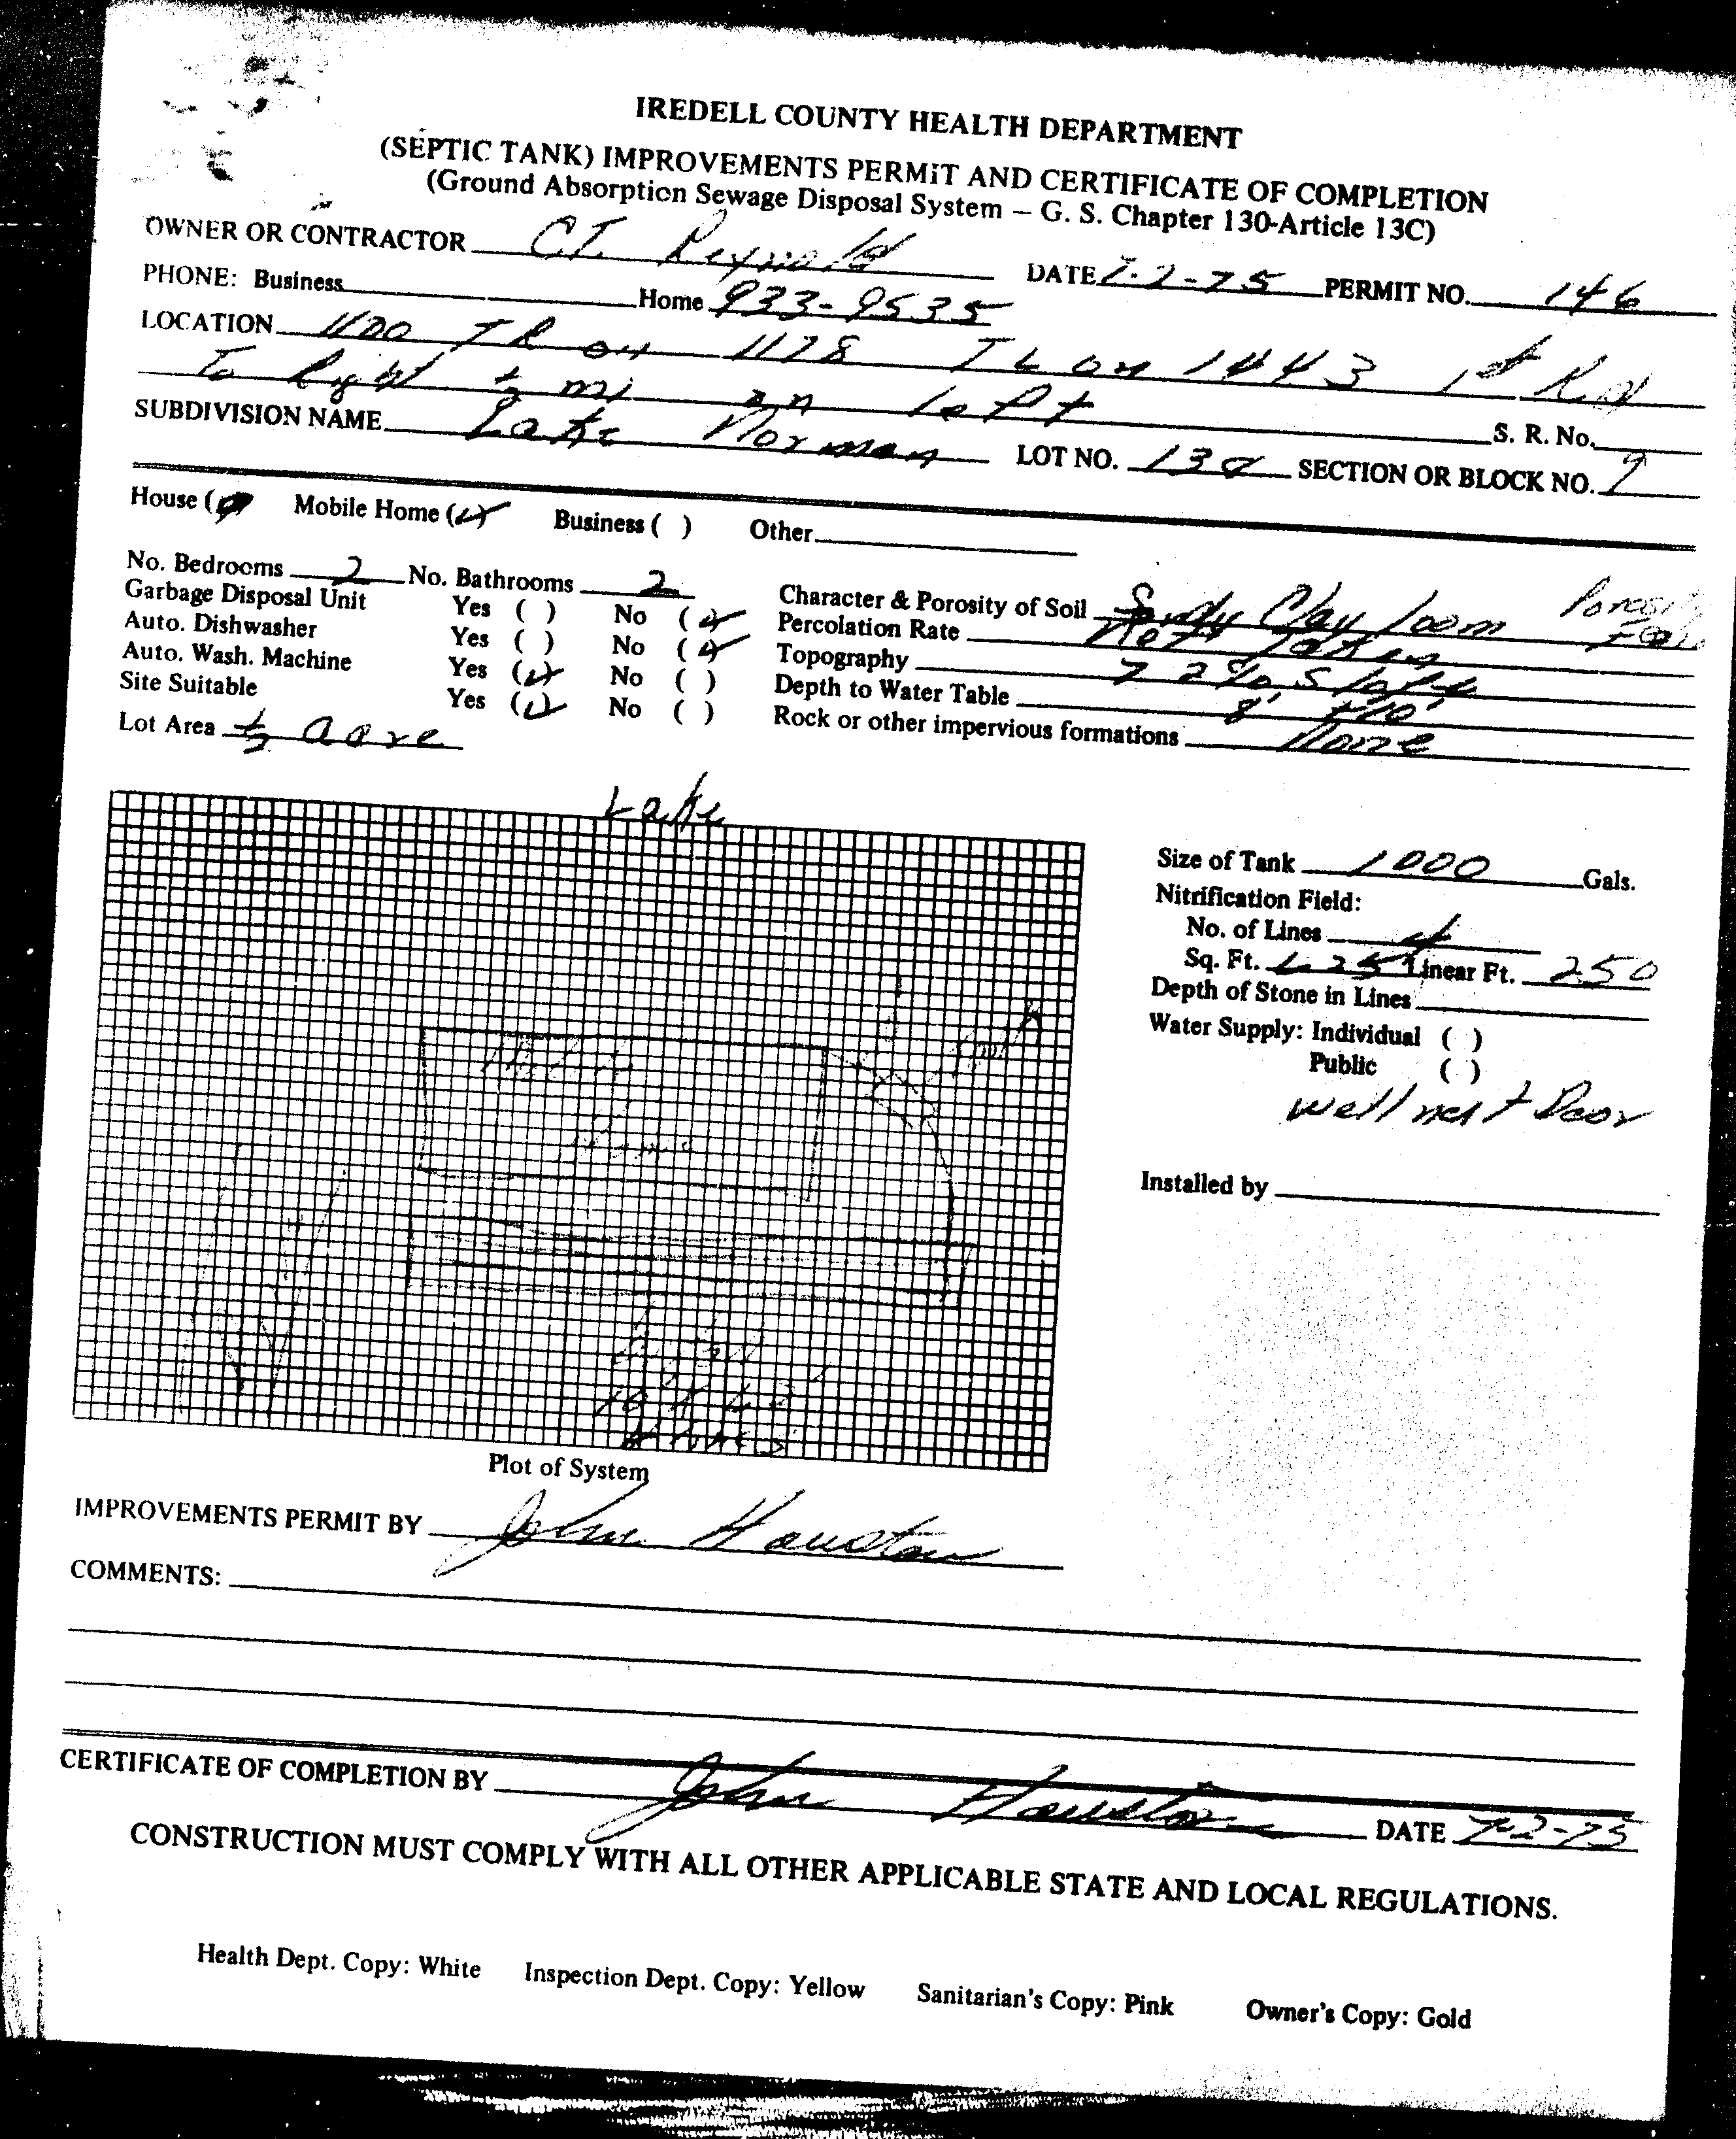 IREDELL COUNTY HEALTH DEPARTMENT
(SEPTIC TANK) IMPROVEMENTS PERMIT AND CERTIFICATE OF COMPLETION
(Ground Absorption Sewage Disposal System – G. S. Chapter 130-Article 13C)
OWNER OR CONTRACTOR C.T. Reynolds DATE 7-2-75 PERMIT NO. 146
PHONE: Business Home 933-9535
LOCATION 1100 TR on 1178 TL on 1443 1st Rd
To Right ½ mi on left S. R. No.
SUBDIVISION NAME Lake Norman LOT NO. 130 SECTION OR BLOCK NO. 9
House ( ) Mobile Home (✓) Business ( ) Other
No. Bedrooms 2 No. Bathrooms 2 Character & Porosity of Soil Sandy Clay loom Porosity
Garbage Disposal Unit Yes ( ) No (✓) Percolation Rate Not Taken
Auto. Dishwasher Yes ( ) No (✓) Topography 2% Slope
Auto. Wash. Machine Yes (✓) No ( ) Depth to Water Table 8'
Site Suitable Yes (✓) No ( ) Rock or other impervious formations None
Lot Area ½ acre
Lake
Size of Tank 1000 Gals.
Nitrification Field:
No. of Lines 4
Sq. Ft. Linear Ft. 250
Depth of Stone in Lines
Water Supply: Individual ( )
Public ( )
well next Door
Installed by
Home
Plot of System
IMPROVEMENTS PERMIT BY John Houston
COMMENTS:
CERTIFICATE OF COMPLETION BY John Houston DATE 7-2-75
CONSTRUCTION MUST COMPLY WITH ALL OTHER APPLICABLE STATE AND LOCAL REGULATIONS.
Health Dept. Copy: White Inspection Dept. Copy: Yellow Sanitarian's Copy: Pink Owner's Copy: Gold